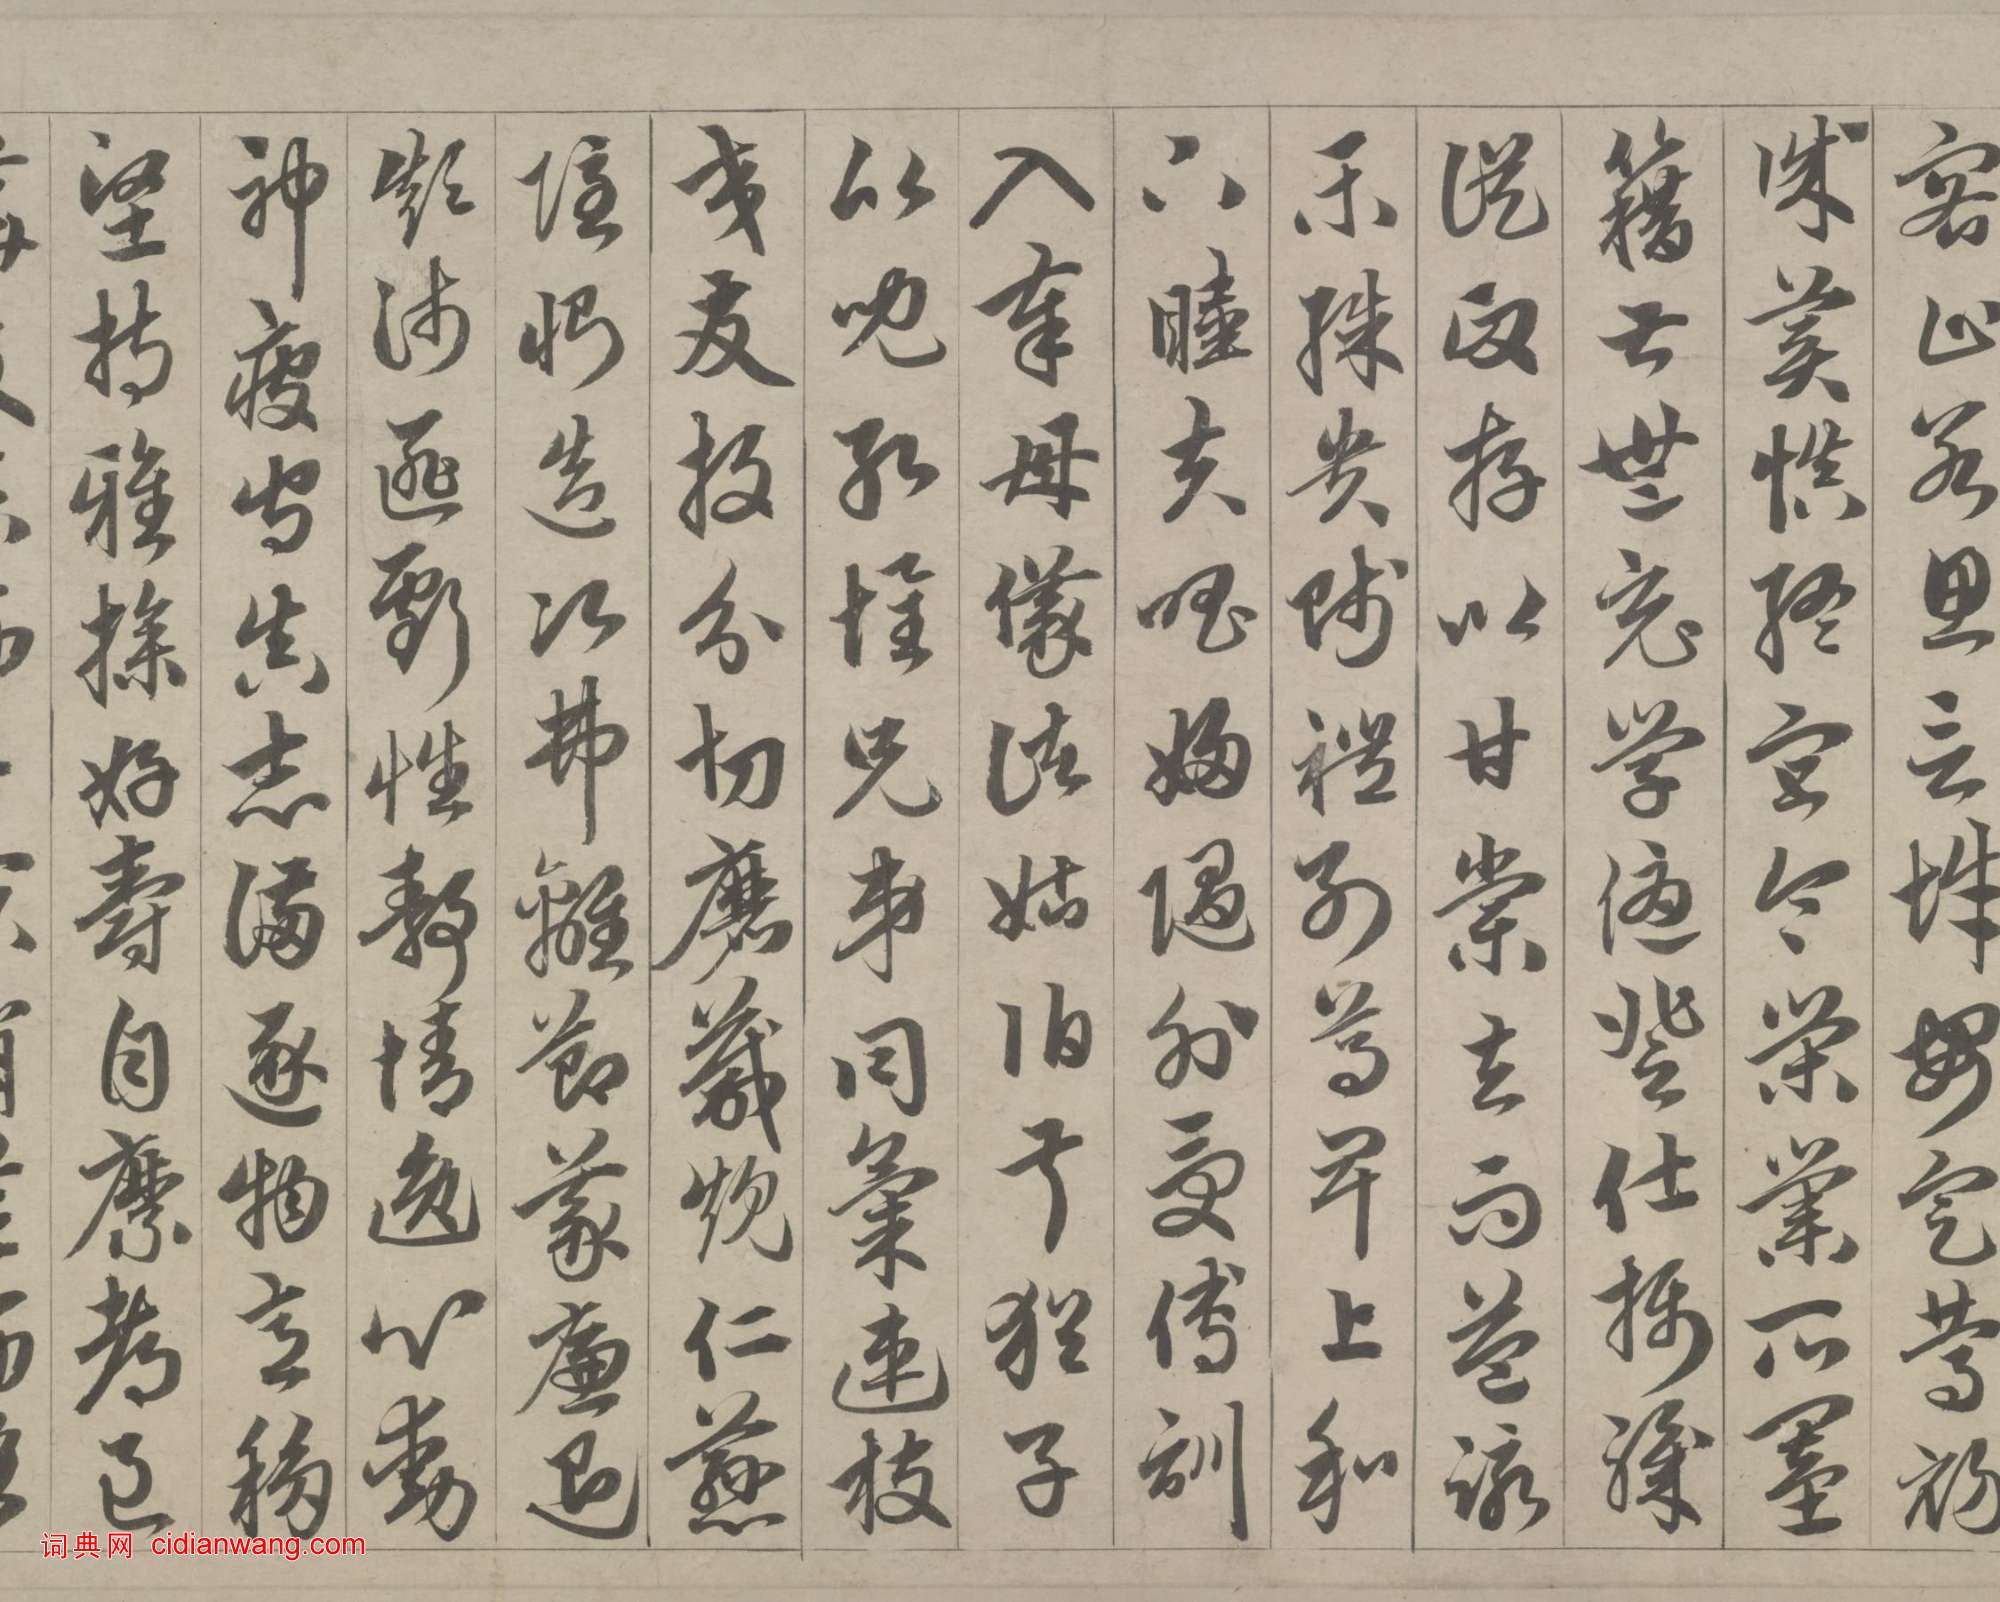 容止若思言辭安定篤初
誠美慎終宜令榮業所基
籍甚無竟學優登仕攝職
從政存以甘棠去而益詠
樂殊貴賤禮別尊卑上和
下睦夫唱婦隨外受傅訓
入奉母儀諸姑伯叔猶子
比兒孔懷兄弟同氣連枝
交友投分切磨箴規仁慈
隱惻造次弗離節義廉退
顛沛匪虧性靜情逸心動
神疲守真志滿逐物意移
堅持雅操好爵自縻都邑
華夏東西二京背芒面洛
词典网 cidianwang.com